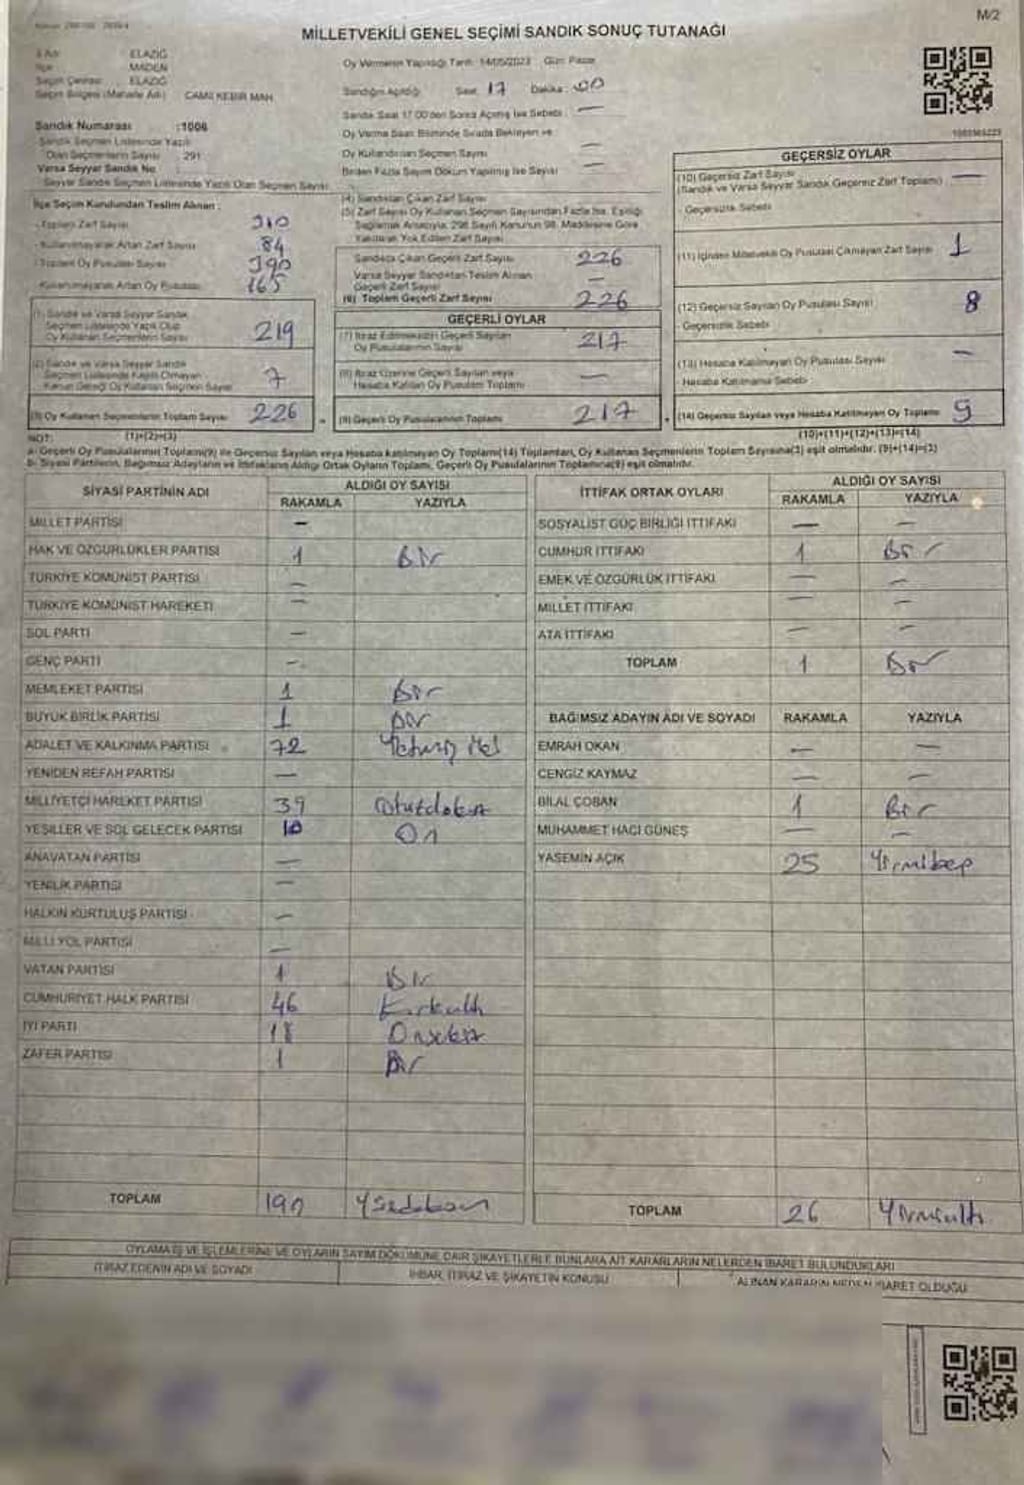 M/2
MİLLETVEKİLİ GENEL SEÇİMİ SANDIK SONUÇ TUTANAĞI
İl Adı : ELAZIĞ
İlçe : MADEN
Seçim Çevresi : ELAZIĞ
Seçim Bölgesi (Mahalle Adı) CAMİİ KEBİR MAH.
Oy Vermenin Yapıldığı Tarih: 14/05/2023 Gün: Pazar
Sandığın Açıldığı Saat: 17 Dakika: 00
Sandık Saat 17.00'den Sonra Açılmış İse Sebebi: —
Oy Verme Saati Bitiminde Sırada Bekleyen ve
Oy Kullandırılan Seçmen Sayısı —
Birden Fazla Sayım Döküm Yapılmış İse Sayısı —
Sandık Numarası :1006
Sandık Seçmen Listesinde Yazılı
Olan Seçmenlerin Sayısı : 291
Varsa Seyyar Sandık No
Seyyar Sandık Seçmen Listesinde Yazılı Olan Seçmen Sayısı
İlçe Seçim Kurulundan Teslim Alınan :
Toplam Zarf Sayısı 310
Kullanılmayarak Artan Zarf Sayısı 84
Toplam Oy Pusulası Sayısı 390
Kullanılmayarak Artan Oy Pusulası 165
(1) Sandık ve Varsa Seyyar Sandık
Seçmen Listesinde Yazılı Olup
Oy Kullanan Seçmenlerin Sayısı 219
(2) Sandık ve Varsa Seyyar Sandık
Seçmen Listesinde Kaydı Olmayan
Kanun Gereği Oy Kullanan Seçmen Sayısı 7
(3) Oy Kullanan Seçmenlerin Toplam Sayısı 226
(1)+(2)=(3)
(4) Sandıktan Çıkan Zarf Sayısı
(5) Zarf Sayısı Oy Kullanan Seçmen Sayısından Fazla İse, Eşitliği
Sağlamak Amacıyla, 298 Sayılı Kanunun 98. Maddesine Göre
Yakılarak Yok Edilen Zarf Sayısı
Sandıkta Çıkan Geçerli Zarf Sayısı 226
Varsa Seyyar Sandıktan Teslim Alınan
Geçerli Zarf Sayısı —
(6) Toplam Geçerli Zarf Sayısı 226
GEÇERLİ OYLAR
(7) İtiraz Edilmeksizin Geçerli Sayılan
Oy Pusulalarının Sayısı 217
(8) İtiraz Üzerine Geçerli Sayılan veya
Hesaba Katılan Oy Pusulası Toplamı —
(9) Geçerli Oy Pusulalarının Toplamı 217
GEÇERSİZ OYLAR
(10) Geçersiz Zarf Sayısı —
(Sandık ve Varsa Seyyar Sandık Geçersiz Zarf Toplamı)
Geçersizlik Sebebi
(11) İçinden Milletvekili Oy Pusulası Çıkmayan Zarf Sayısı 1
(12) Geçersiz Sayılan Oy Pusulası Sayısı 8
Geçersizlik Sebebi
(13) Hesaba Katılmayan Oy Pusulası Sayısı —
Hesaba Katılmama Sebebi
(14) Geçersiz Sayılan veya Hesaba Katılmayan Oy Toplamı 9
(10)+(11)+(12)+(13)=(14)
NOT:
a- Geçerli Oy Pusulalarının Toplamı(9) ile Geçersiz Sayılan veya Hesaba katılmayan Oy Toplamı(14) Toplamları, Oy Kullanan Seçmenlerin Toplam Sayısına(3) eşit olmalıdır. (9)+(14)=(3)
b- Siyasi Partilerin, Bağımsız Adayların ve İttifakların Aldığı Ortak Oyların Toplamı, Geçerli Oy Pusulalarının Toplamına(9) eşit olmalıdır.
SİYASİ PARTİNİN ADI ALDIĞI OY SAYISI
RAKAMLA YAZIYLA
MİLLET PARTİSİ —
HAK VE ÖZGÜRLÜKLER PARTİSİ 1 Bir
TÜRKİYE KOMÜNİST PARTİSİ —
TÜRKİYE KOMÜNİST HAREKETİ —
SOL PARTİ —
GENÇ PARTİ —
MEMLEKET PARTİSİ 1 Bir
BÜYÜK BİRLİK PARTİSİ 1 Bir
ADALET VE KALKINMA PARTİSİ 72 Yetmiş iki
YENİDEN REFAH PARTİSİ —
MİLLİYETÇİ HAREKET PARTİSİ 39 Otuzdokuz
YEŞİLLER VE SOL GELECEK PARTİSİ 10 On
ANAVATAN PARTİSİ —
YENİLİK PARTİSİ —
HALKIN KURTULUŞ PARTİSİ —
MİLLİ YOL PARTİSİ —
VATAN PARTİSİ 1 Bir
CUMHURİYET HALK PARTİSİ 46 Kırkaltı
İYİ PARTİ 18 Onsekiz
ZAFER PARTİSİ 1 Bir
TOPLAM 190
İTTİFAK ORTAK OYLARI ALDIĞI OY SAYISI
RAKAMLA YAZIYLA
SOSYALİST GÜÇ BİRLİĞİ İTTİFAKI — —
CUMHUR İTTİFAKI 1 Bir
EMEK VE ÖZGÜRLÜK İTTİFAKI — —
MİLLET İTTİFAKI — —
ATA İTTİFAKI — —
TOPLAM 1 Bir
BAĞIMSIZ ADAYIN ADI VE SOYADI RAKAMLA YAZIYLA
EMRAH OKAN — —
CENGİZ KAYMAZ — —
BİLAL ÇOBAN 1 Bir
MUHAMMET HACI GÜNEŞ — —
YASEMİN AÇIK 25 Yirmibeş
TOPLAM 26 Yirmialtı
OYLAMA İŞ VE İŞLEMLERİNE VE OYLARIN SAYIM DÖKÜMÜNE DAİR ŞİKAYETLERLE BUNLARA AİT KARARLARIN NELERDEN İBARET BULUNDUKLARI
İTİRAZ EDENİN ADI VE SOYADI İHBAR, İTİRAZ VE ŞİKAYETİN KONUSU ALINAN KARARIN NEDEN İBARET OLDUĞU